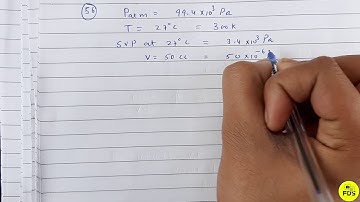 56 Patm = 99.4 x 10³ Pa
T = 27°C = 300K
SVP at 27°C = 3.4 x 10³ Pa
V = 50 cc = 50 x 10⁻⁶
FDS